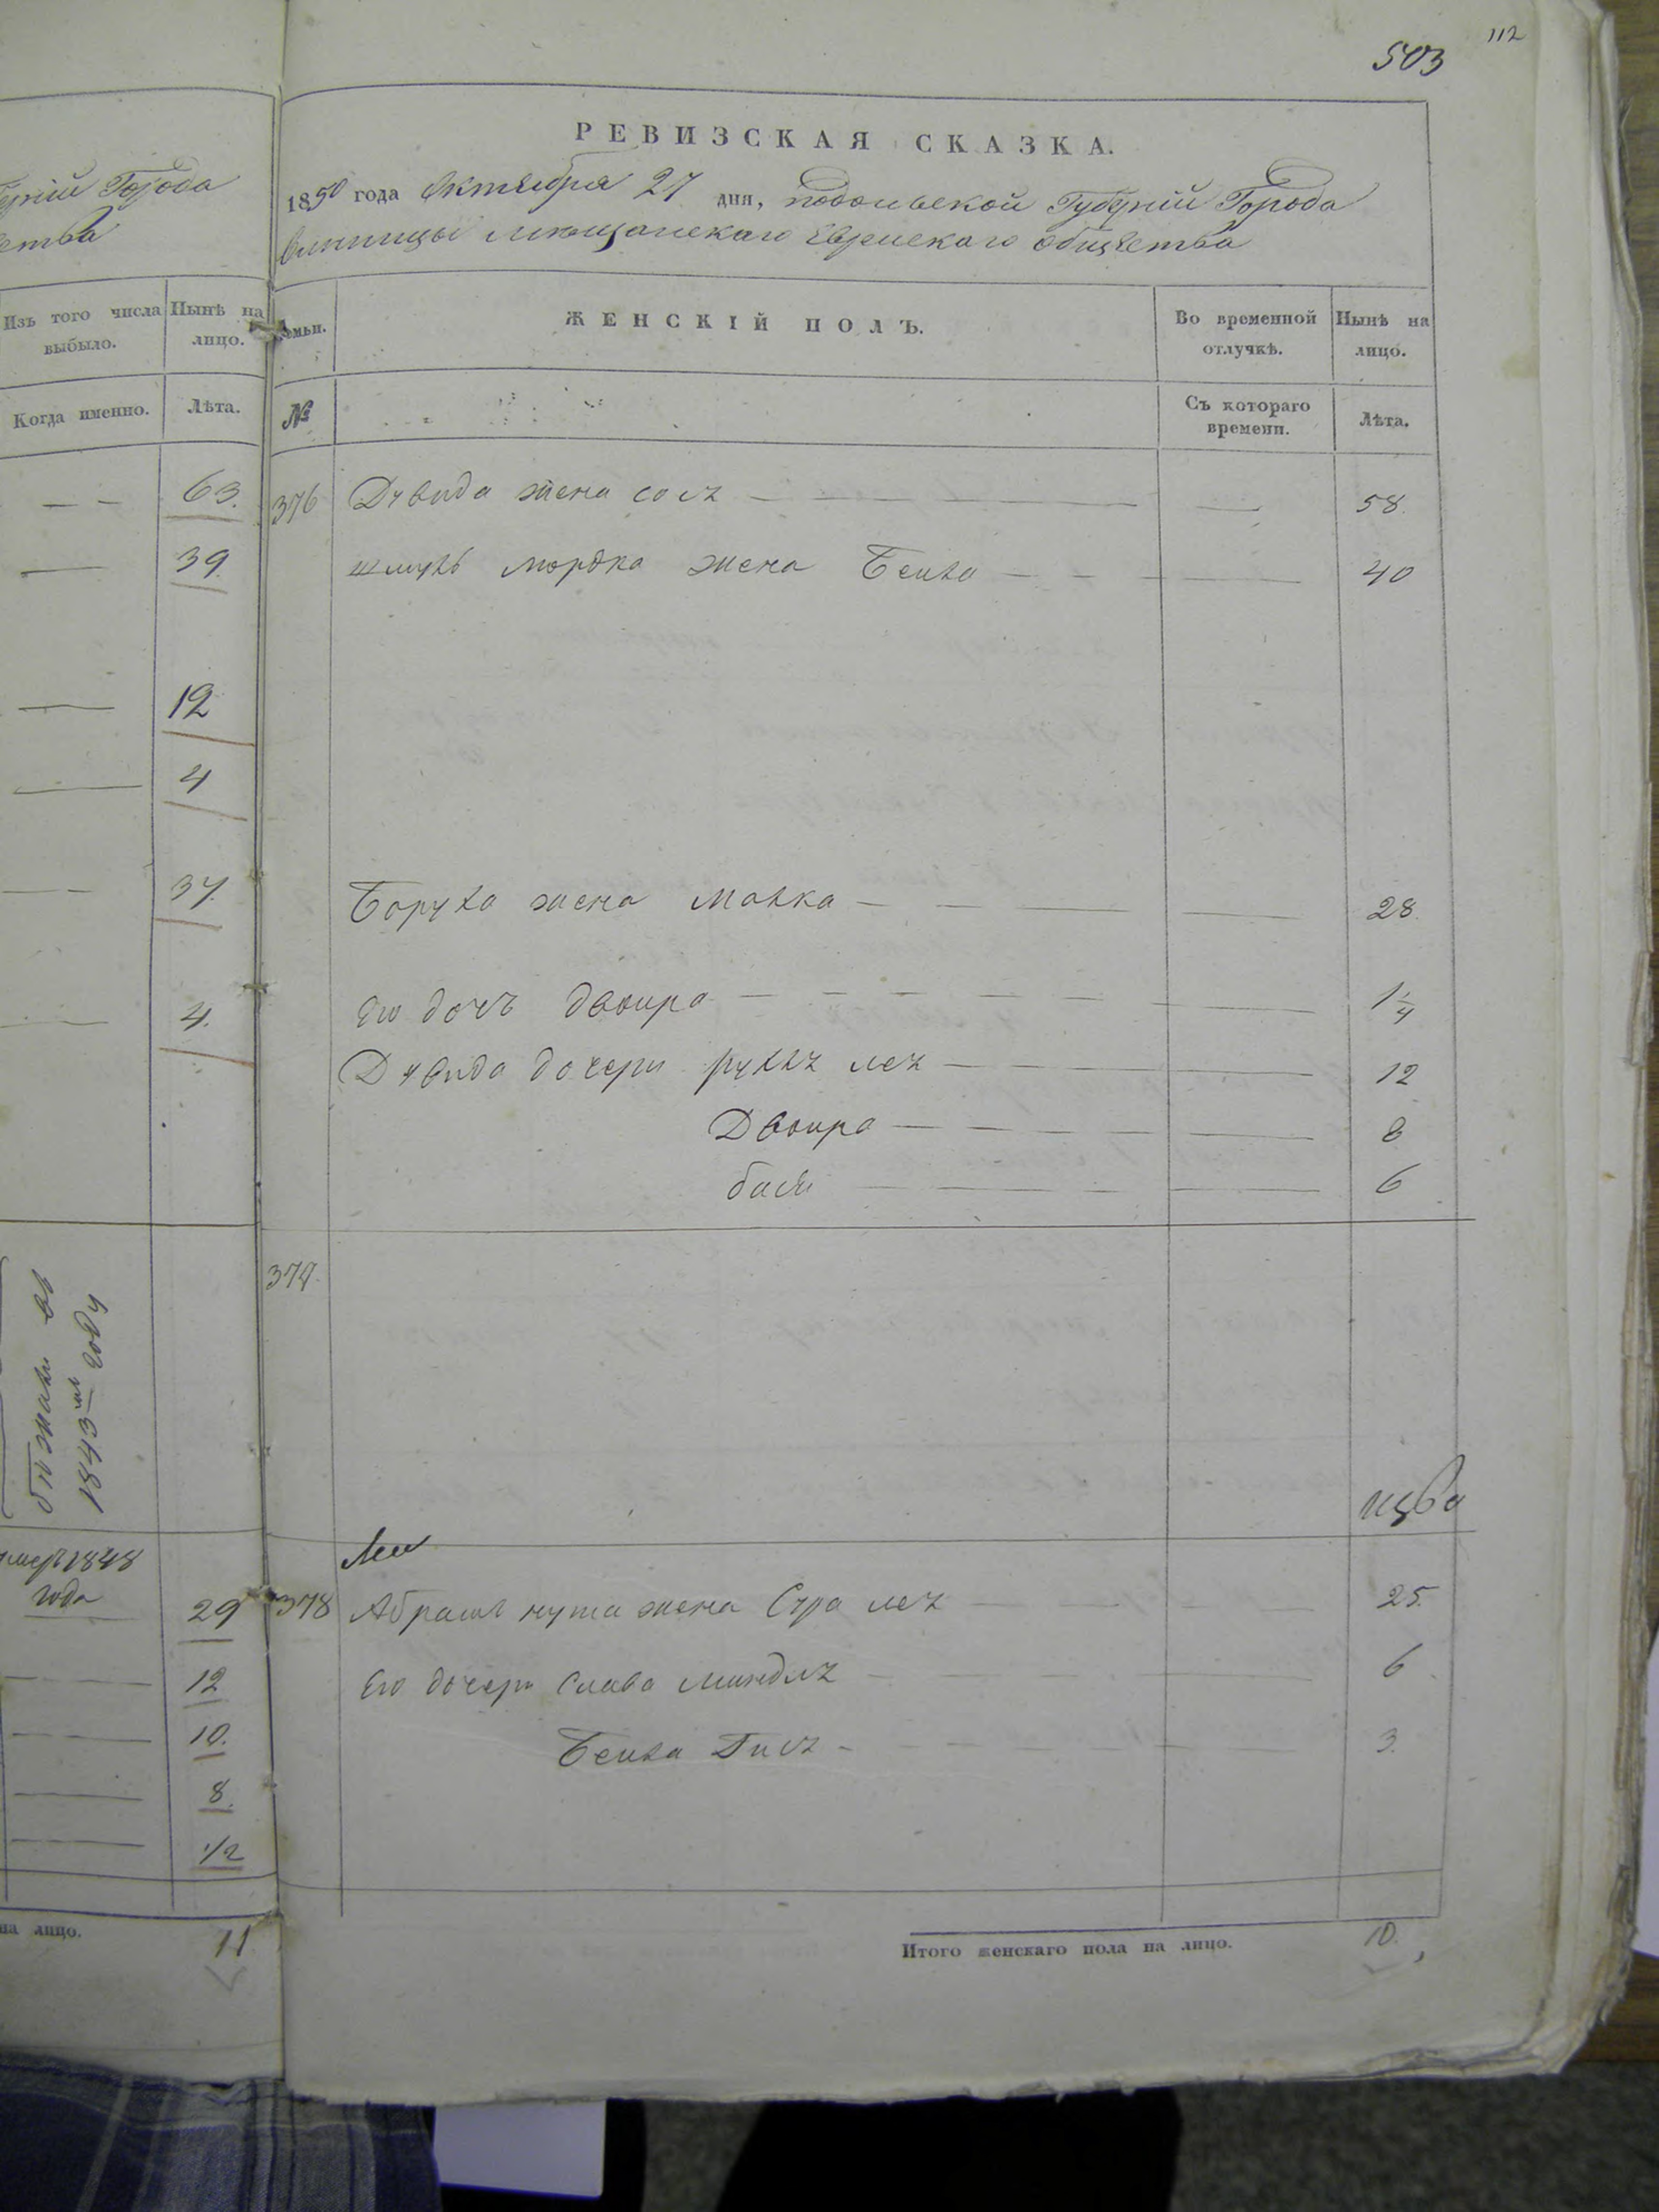 112
503
РЕВИЗСКАЯ СКАЗКА.
1850 года Октября 27 дня, подольской Губерніи Города
винницы мещанскаго Еврейскаго общества
Города
ства
Изъ того числа выбыло.
Нынѣ на лицо.
Когда именно.
Лѣта.
63.
39
12
4
37.
4.
бежали въ
1843мъ году
умеръ 1848
года
29
12
10.
8.
1/2
на лицо.
11
семьи.
ЖЕНСКІЙ ПОЛЪ.
Во временной отлучкѣ.
Нынѣ на лицо.
№
Съ котораго времени.
Лѣта.
376 Дувида жена сосъ 58.
шмуль мордка жена Бейла 40
Боруха жена Малка 28.
Его дочь двойра 1 1/4
Дувида дочери рухль лея 12
Двойра 8
бася 6
377.
378 Абрамъ нута жена Сура лея 25.
Его дочери слава миндля 6
Бейла Гися 3.
Итого женскаго пола на лицо. 10.